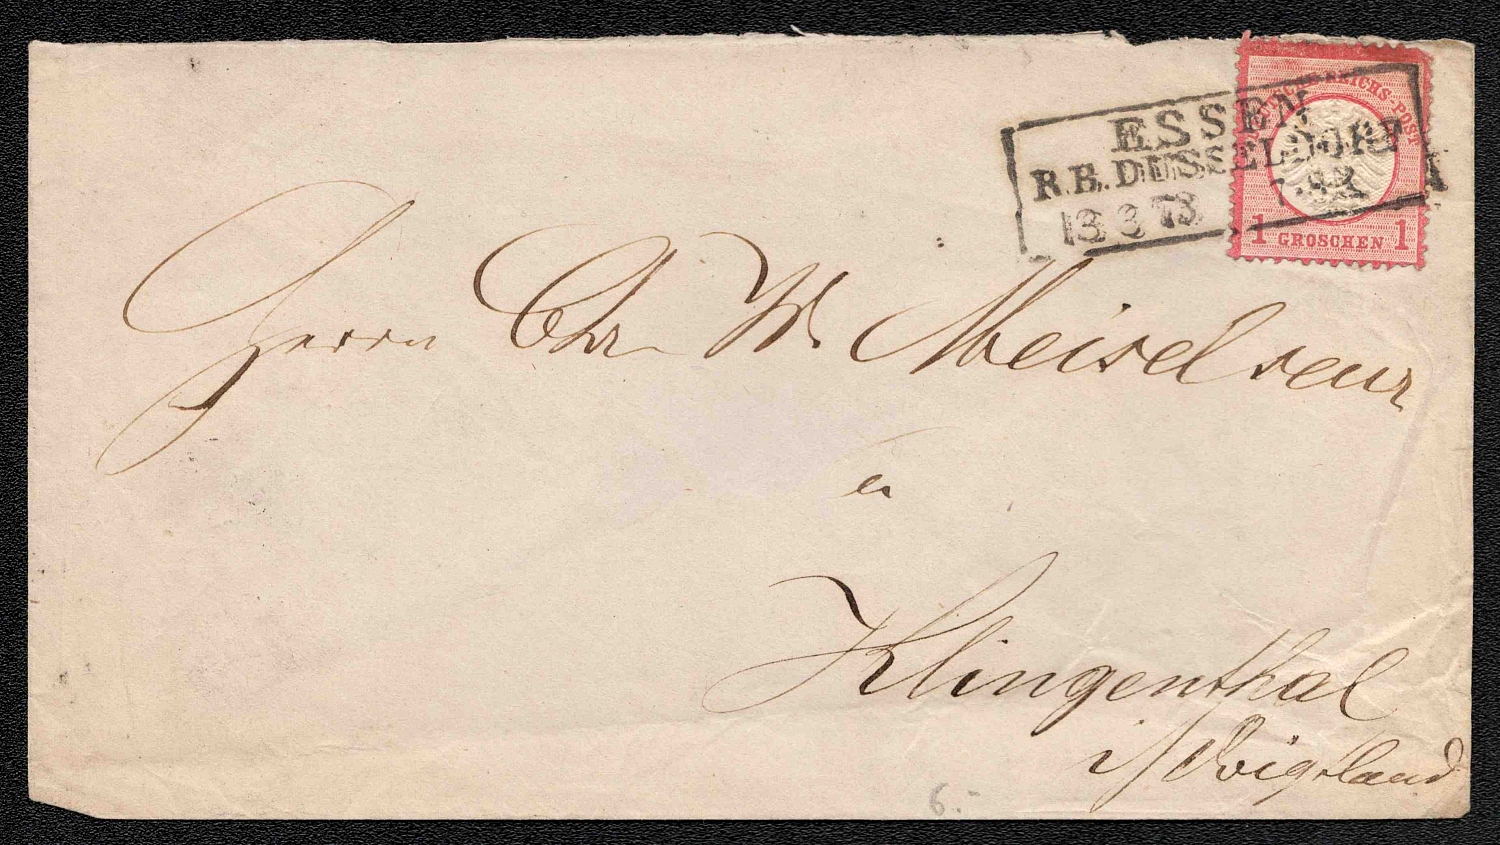 DEUTSCHE REICHS-POST
1 GROSCHEN 1
ESSEN
R.B.DUSSELDORF
13 3 73
Herrn Chr W. Meisel senr
Klingenthal
i/ Voigtland
6.-